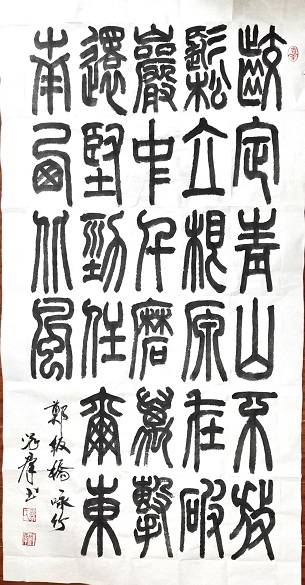 齩定青山不放
鬆立根原在破
巖中千磨萬擊
還堅勁任爾東
南西北風
鄭板橋詠竹
群书